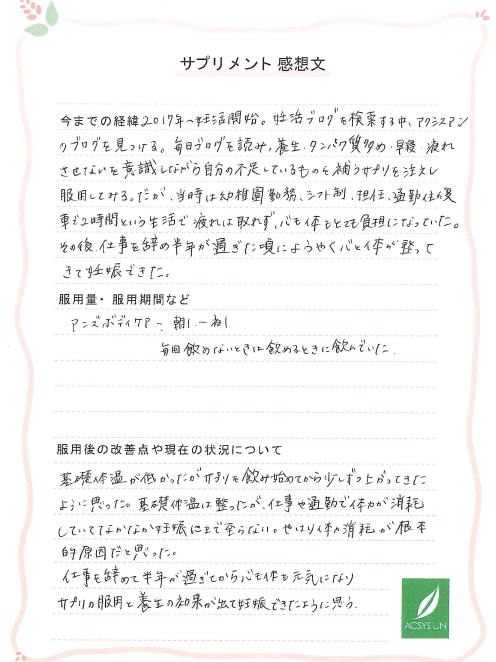 サプリメント 感想文
今までの経緯 2017年〜妊活開始。妊活ブログを検索する中、アクシスアン
のブログを見つける。毎日ブログを読み、養生・タンパク質多め・早寝・疲れ
させないを意識しながら自分の不足しているものを補うサプリを注文し
服用してみる。だが、当時は幼稚園勤務、シフト制、担任、通勤往復
車で2時間という生活で疲れは取れず、心も体もとても負担になっていた。
その後、仕事を辞め半年が過ぎた頃にようやく心と体が整って
きて妊娠できた。
服用量・服用期間など
アンズボディケア
毎回飲めないときは飲めるときに飲んでいた。
服用後の改善点や現在の状況について
基礎体温が低かったがサプリを飲み始めてから少しずつ上がってきた
ように思った。基礎体温は整ったが、仕事や通勤で体力が消耗
していてなかなか妊娠にまで至らない。やはり体力消耗が根本
的原因だと思った。
仕事を辞めて半年が過ぎてから心も体も元気になり
サプリの服用と養生の効果が出て妊娠できたように思う。
ACSYS UN